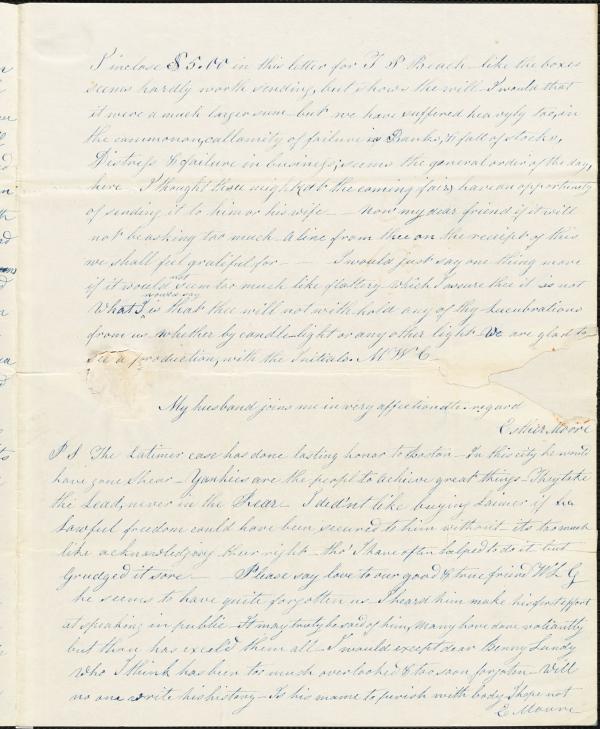 I inclose $5.00 in this letter for T S Beach – like the boxes
seems hardly worth sending, but shows the will – I would that
it were a much larger sum – but we have suffered heavyly too, in
the common callamity of failure in Banks, & fall of stocks,
Distress & failure in business, seems the general order of the day,
here – I thought thou might at the coming fair, have an opportunity
of sending it to him or his wife – – now my dear friend if it will
not be asking too much – A line from thee on the receipt of this
we shall feel grateful for – – I would just say one thing more
if it would not seem too much like flattery which I assure thee it is not
What I would say is that thee will not with hold any of thy Lucubrations
from us whether by candle-light or any other light We are glad to
see a production, with the Initials. M W C –
My husband joins me in very affectionate regard
Esther Moore
P S The Latimer case has done lasting honor to Boston – In this city he would
have gone – Yankees are the peopl to achieve great things – They take
the Lead, never in the Rear – I did'nt like buying Latimer if his
Lawful freedom could have been secured to him without – its too much
like acknowledging their right – tho' I have often helped to do it, but
Grudged it sore – – Please say love to our good & true friend W L G
he seems to have quite forgotten us – I heard him make his first effort
at speaking in public – It may truly be said of him, Many have done valiantly
but thou has exceld them all – I would except dear Benny Lundy
Who I think has been too much overlooked & too soon forgotn – Will
no one write his history – Is his name to perish with body I hope not
E Moore